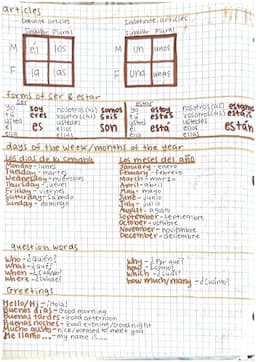 articles
Definite articles
Indefinite articles
Singular Plural
Singular Plural
M él los
M un unos
F la las
F una unas
forms of ser & estar
Ser
Estar
yo soy nosotros(as) somos
tú eres vosotros(as) sois
usted ustedes
él es ellos son
ella ellas
yo estoy nosotros(as) estamos
tú estás vosotros(as) estáis
usted ustedes
él está ellos están
ella ellas
days of the week/months of the year
Los días de la semana
Monday-lunes
Tuesday-martes
Wednesday-miércoles
Thursday-jueves
Friday-viernes
Saturday-sábado
Sunday-domingo
Los meses del año
January-enero
February-febrero
March-marzo
April-abril
May-mayo
June-junio
July-julio
August-agosto
September-septiembre
October-octubre
November-noviembre
December-diciembre
question words
Who-¿Quién?
What-¿Qué?
When-¿Cuándo?
Where-¿Dónde?
Why-¿Por qué?
how-¿Cómo?
Which-¿Cuál?
how much/many-¿Cuánto?
Greetings
Hello/Hi-¡Hola!
Buenos días-Good morning
Buenas tardes-Good afternoon
Buenas noches-Good evening/Goodnight
Mucho gusto-nice/pleased to meet you
Me llamo...-my name is...